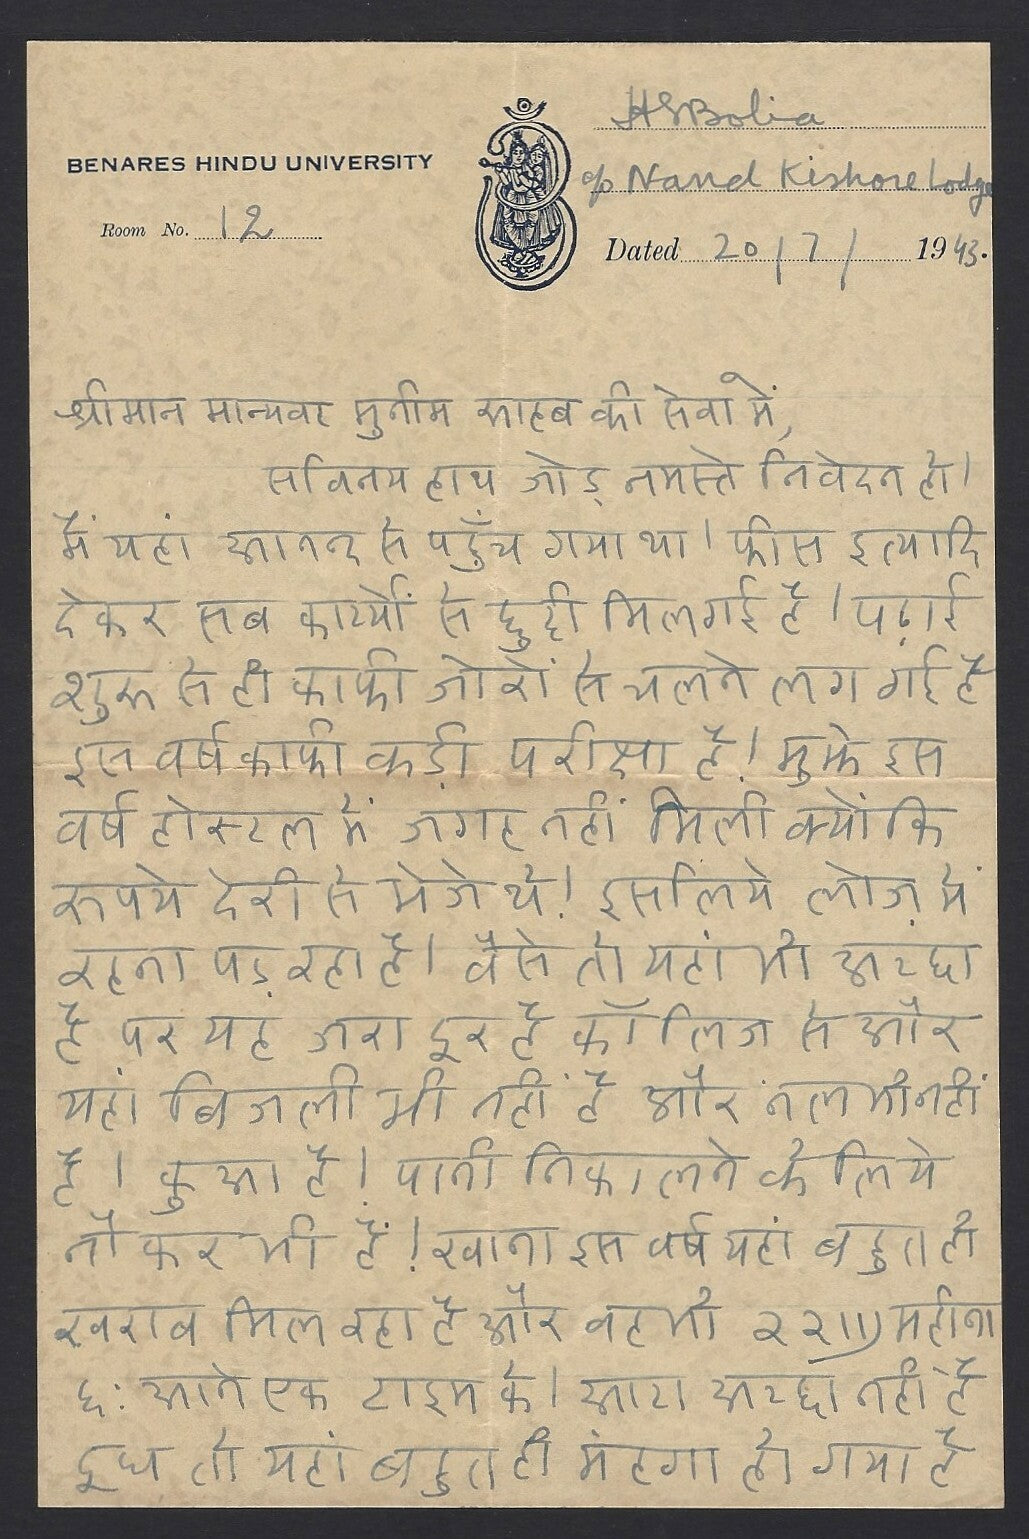 H S Bolia
BENARES HINDU UNIVERSITY
c/o Nand Kishore Lodge
Room No. 12
Dated 20/7/ 1943.
श्रीमान मान्यवर मुनीम साहब की सेवा में,
सविनय हाथ जोड़ नमस्ते निवेदन हो।
मैं यहां आनन्द से पहुँच गया था। फीस इत्यादि
देकर सब कार्य्यों से छुट्टी मिल गई है। पढ़ाई
शुरू से ही काफी जोरों से चलने लग गई है
इस वर्ष काफी कड़ी परीक्षा है! मुझे इस
वर्ष होस्टल में जगह नहीं मिली क्योंकि
रूपये देरी से भेजे थे! इसलिये लोज में
रहना पड़ रहा है। वैसे तो यहां भी अच्छा
है पर यह जरा दूर है कॉलिज से और
यहां बिजली भी नहीं है और नल भी नहीं
है। कुआ है! पानी निकालने के लिये
नौकर भी हैं! खाना इस वर्ष यहां बहुत ही
खराब मिल रहा है और वह भी २२॥) महीना
छ: आने एक टाइम के। आटा अच्छा नहीं है
दूध तो यहां बहुत ही मंहगा हो गया है